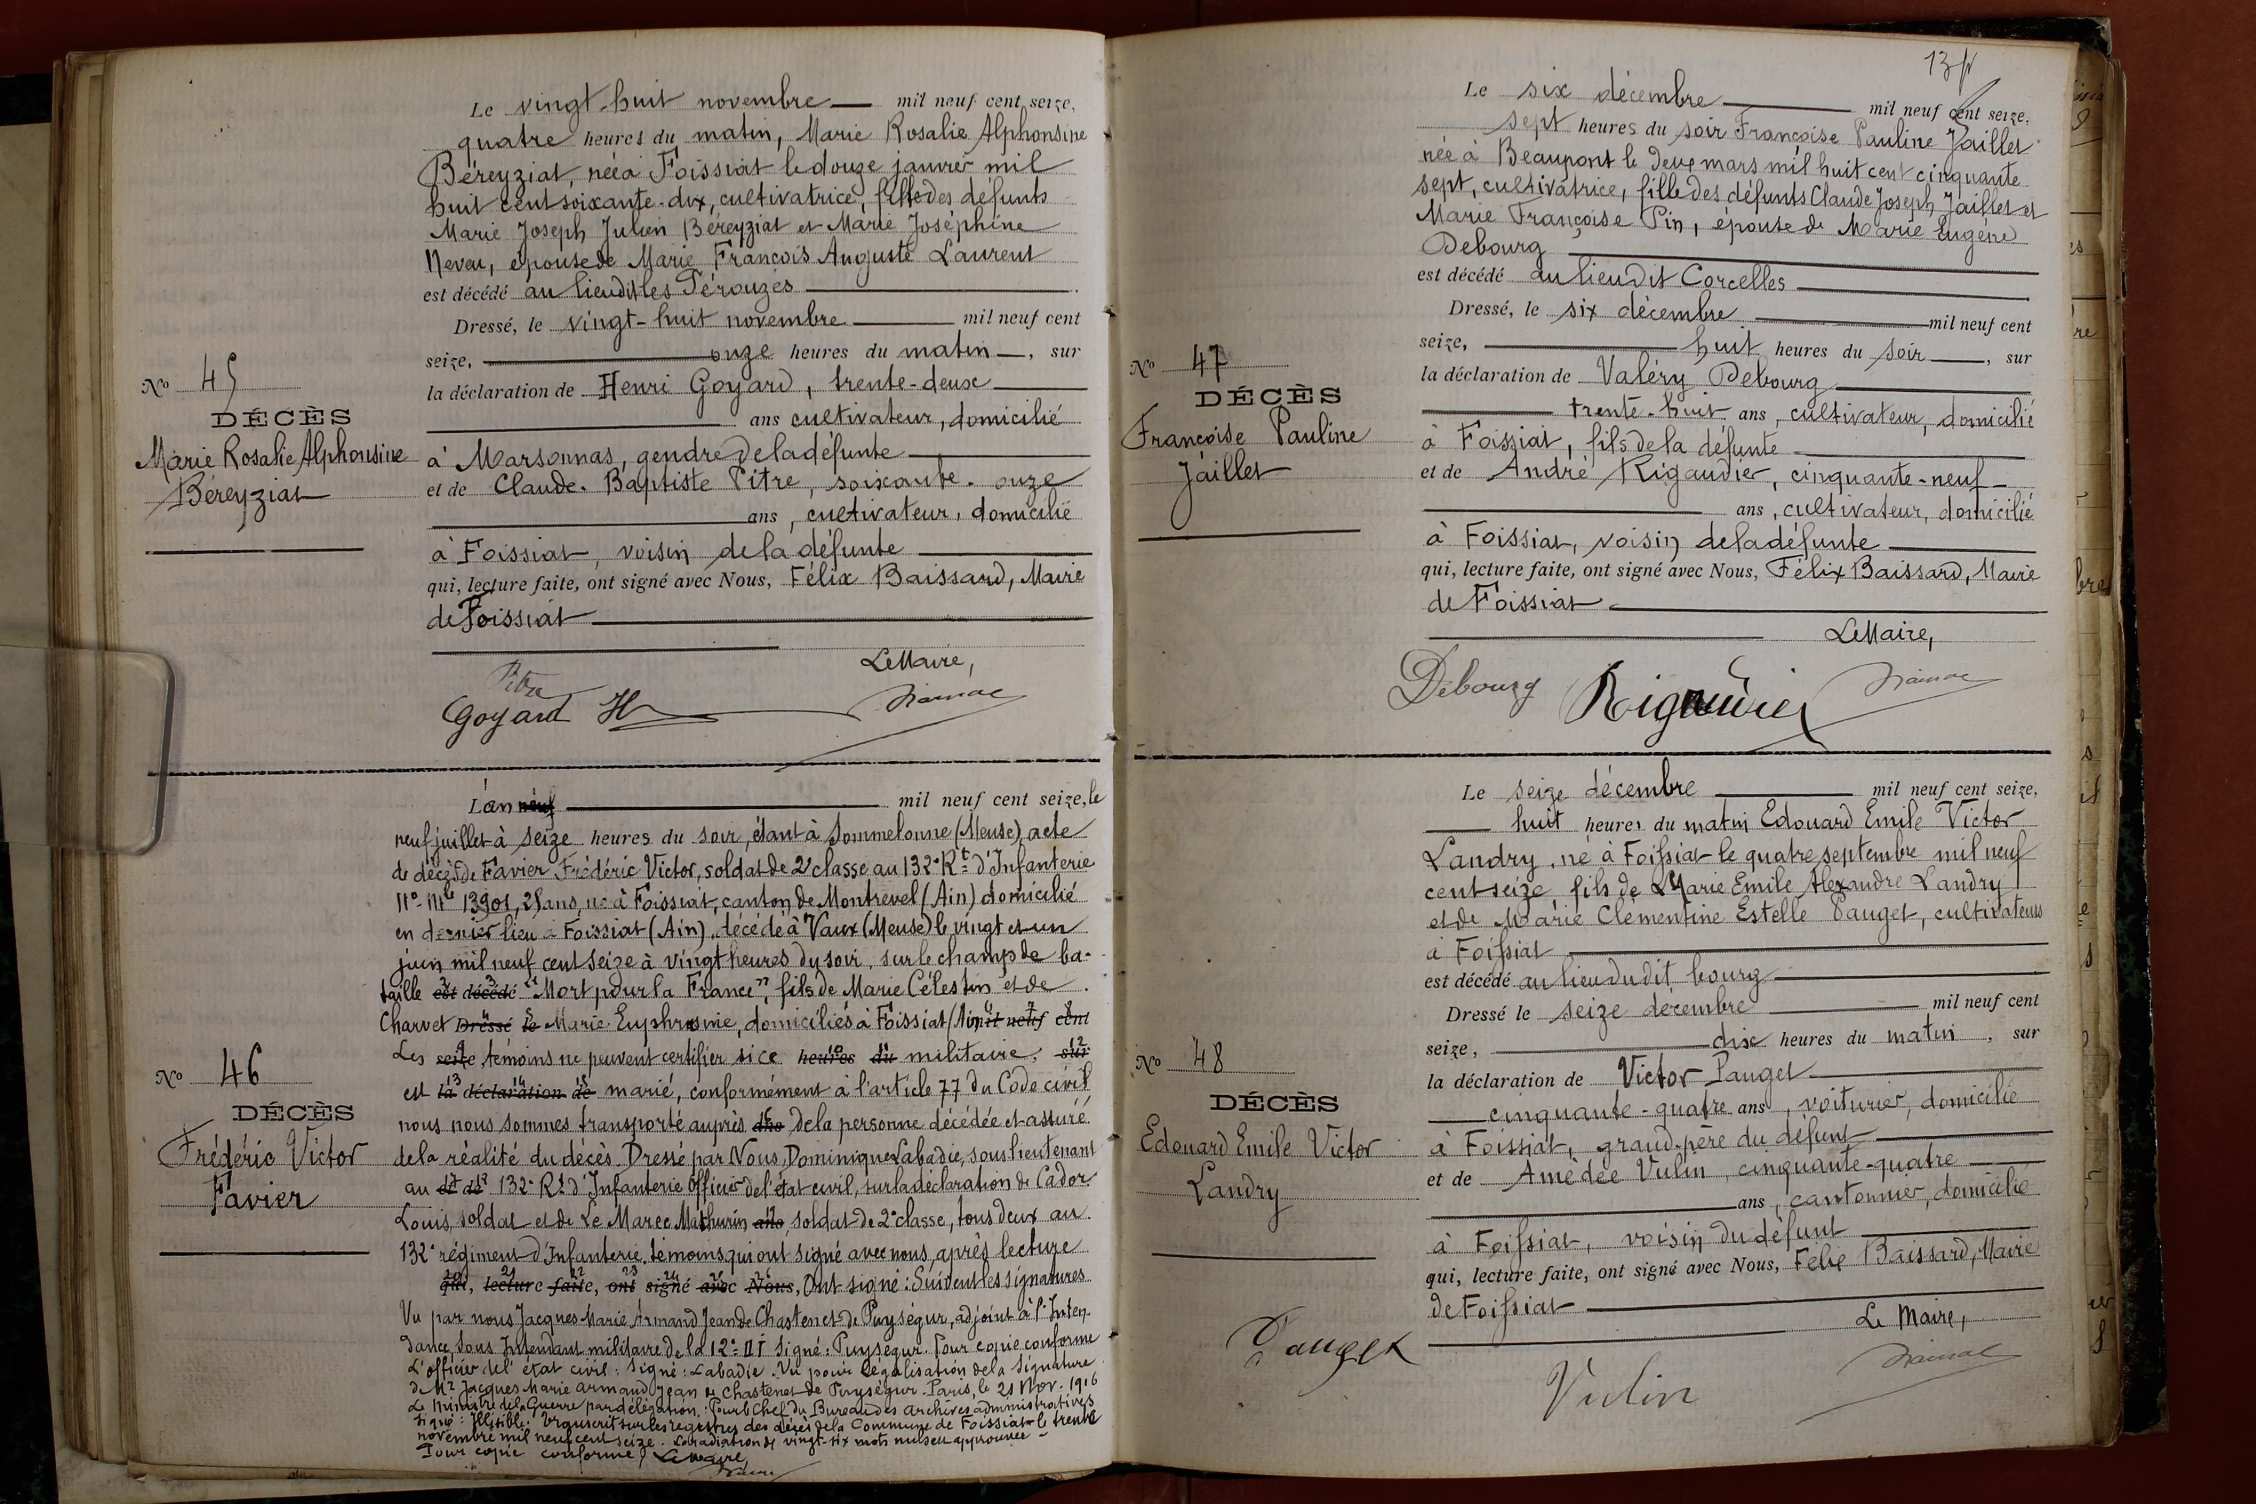 Le vingt-huit novembre mil neuf cent seize,
quatre heures du matin, Marie Rosalie Alphonsine
Béreyziat, née à Foissiat le douze janvier mil
huit cent soixante-dix, cultivatrice, fille des défunts
Marie Joseph Julien Béreyziat et Marie Joséphine
Neveu, épouse de Marie François Auguste Laurent
est décédé au lieu dit les Pérouzes
Dressé, le vingt-huit novembre mil neuf cent
seize, onze heures du matin, sur
la déclaration de Henri Goyard, trente-deux
ans cultivateur, domicilié
à Marsonnas, gendre de la défunte
et de Claude-Baptiste Pitre, soixante-onze
ans, cultivateur, domicilié
à Foissiat, voisin de la défunte
qui, lecture faite, ont signé avec Nous, Félix Baissard, Maire
de Foissiat
Le Maire,
Pitre
Goyard H
No 45
DÉCÈS
Marie Rosalie Alphonsine
Béreyziat
L'an neuf mil neuf cent seize, le
neuf juillet à seize heures du soir, étant à Sommelonne (Meuse) acte
de décès de Favier Frédéric Victor, soldat de 2e classe au 132e Rt d'Infanterie
No Mle 13901, 25 ans, né à Foissiat, canton de Montrevel (Ain) domicilié
en dernier lieu à Foissiat (Ain), décédé à Vaux (Meuse) le vingt et un
juin mil neuf cent seize à vingt heures du soir, sur le champ de ba-
taille est décédé "Mort pour la France", fils de Marie Célestin et de
Charvet Dressé le Marie Euphrosine, domiciliés à Foissiat (Ain) mil neuf cent
Les seize témoins ne peuvent certifier si ce heures du militaire, sur
est la déclaration de marié, conformément à l'article 77 du Code civil
nous nous sommes transporté auprès ans de la personne décédée et assuré
de la réalité du décès. Dressé par Nous, Dominique Labadie, sous-lieutenant
au et de 132e Rt d'Infanterie Officier de l'état civil, sur la déclaration de Cador
Louis, soldat et de Le Marec Mathurin ans, soldat de 2e classe, tous deux au
132e régiment d'Infanterie, témoins qui ont signé avec nous, après lecture
qui, lecture faite, ont signé avec Nous, Ont signé: Suivent les signatures
Vu par nous Jacques Marie Armand Jean de Chastenet de Puységur, adjoint à l'Inten-
dance, Sous Intendant militaire de la 12e DI signé: Puységur. Pour copie conforme
L'officier de l'état civil: signé: Labadie. Vu pour légalisation de la signature
de Mr Jacques Marie Armand Jean de Chastenet de Puységur. Paris, le 21 Nov. 1916
Le Ministre de la Guerre par délégation: Pour le Chef du Bureau des archives administratives
signé: Illisible. Transcrit sur les registres des décès de la Commune de Foissiat le trente
novembre mil neuf cent seize. La radiation de vingt-six mots nuls est approuvée
Pour copie conforme, Le Maire,
No 46
DÉCÈS
Frédéric Victor
Favier
13
Le six décembre mil neuf cent seize,
sept heures du soir Françoise Pauline Jaillet
née à Beaupont le deux mars mil huit cent cinquante
sept, cultivatrice, fille des défunts Claude Joseph Jaillet et
Marie Françoise Pin, épouse de Marie Eugène
Debourg
est décédé au lieu dit Corcelles
Dressé, le six décembre mil neuf cent
seize, huit heures du soir, sur
la déclaration de Valéry Debourg
trente-huit ans, cultivateur, domicilié
à Foissiat, fils de la défunte
et de André Rigaudier, cinquante-neuf
ans, cultivateur, domicilié
à Foissiat, voisin de la défunte
qui, lecture faite, ont signé avec Nous, Félix Baissard, Maire
de Foissiat
Le Maire,
Debourg Rigaudier
No 47
DÉCÈS
Françoise Pauline
Jaillet
Le seize décembre mil neuf cent seize,
huit heures du matin Edouard Emile Victor
Landry, né à Foissiat le quatre septembre mil neuf
cent seize, fils de Marie Emile Alexandre Landry
et de Marie Clémentine Estelle Pauget, cultivateurs
à Foissiat
est décédé au lieu du dit bourg
Dressé le seize décembre mil neuf cent
seize, dix heures du matin, sur
la déclaration de Victor Pauget
cinquante-quatre ans, voiturier, domicilié
à Foissiat, grand-père du défunt
et de Amédée Vulin, cinquante-quatre
ans, cantonnier, domicilié
à Foissiat, voisin du défunt
qui, lecture faite, ont signé avec Nous, Félix Baissard, Maire
de Foissiat
Le Maire,
Pauget
Vulin
No 48
DÉCÈS
Edouard Emile Victor
Landry